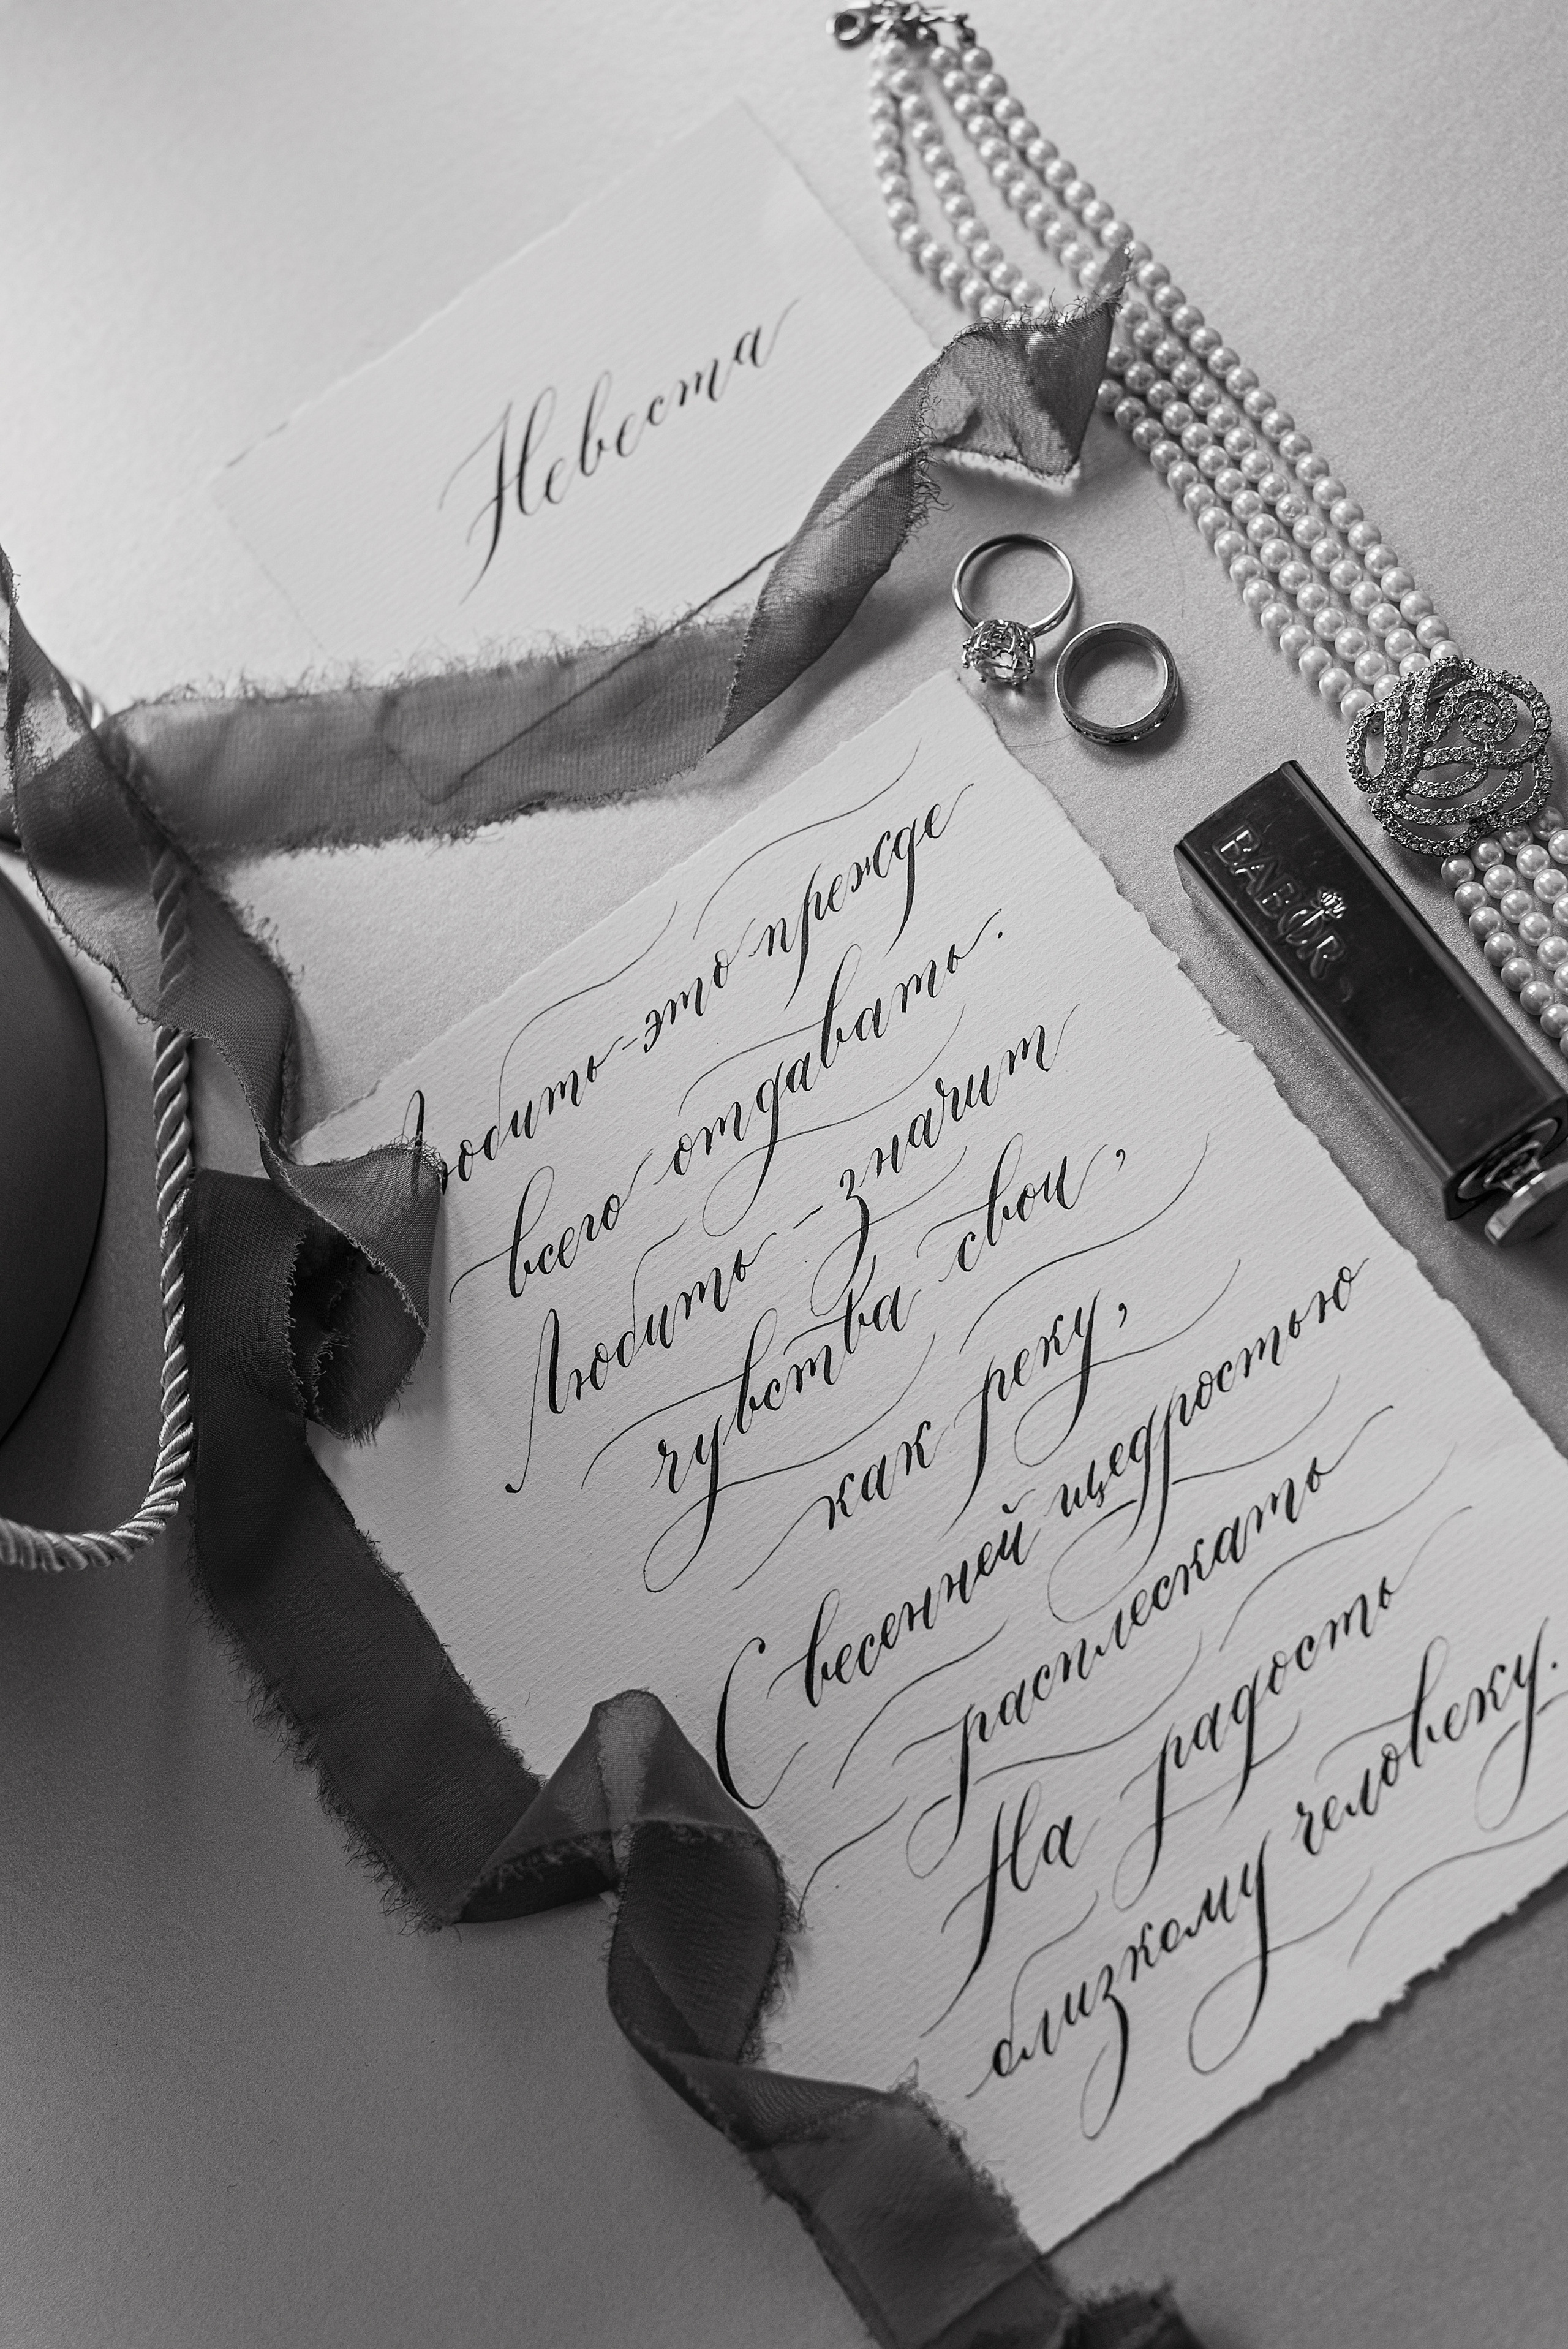 Невеста
Любить-это прежде
всего отдавать.
Любить - значит
чувства свои,
как реку,
С весенней щедростью
расплескать
На радость
близкому человеку.
BABOR